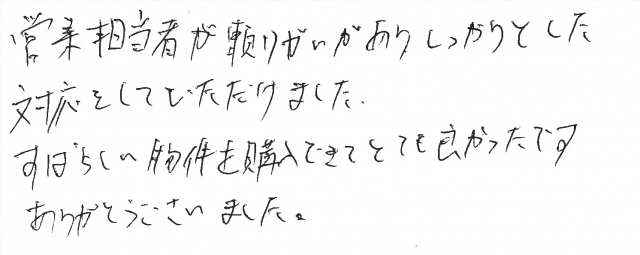 営業担当者が頼りがいがありしっかりとした
対応をしていただけました.
すばらしい物件を購入できてとても良かったです
ありがとうございました。